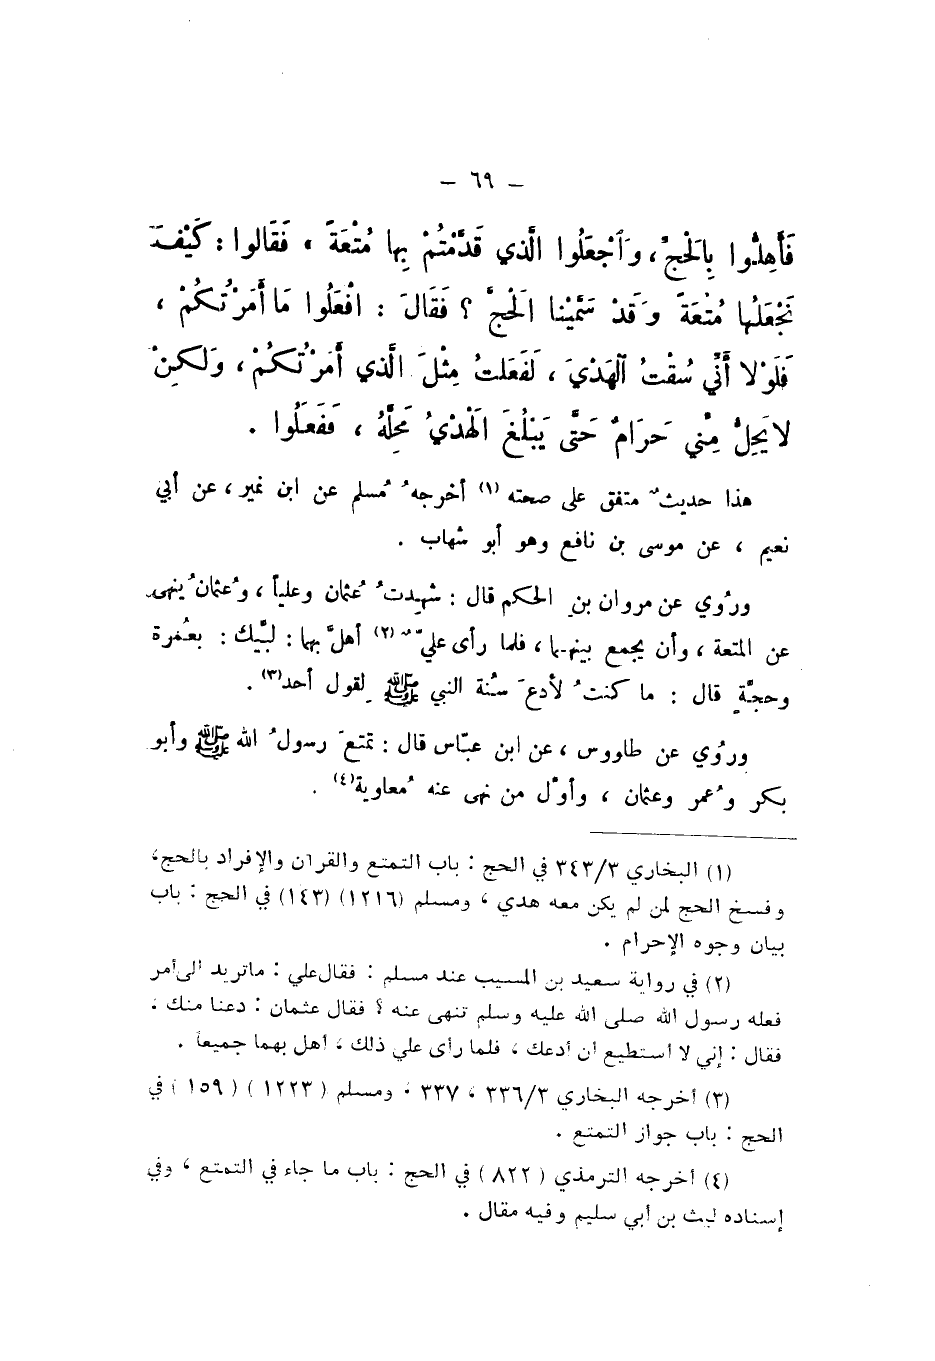 — ٦٩ —
فَأَهِلُّوا بِالْحَجِّ ، وَاجْعَلُوا الَّذي قَدَّمْتُمْ بِها مُتْعَةً ، فَقَالوا : كَيْفَ
نَجْعَلُها مُتْعَةً وَقَدْ سَمَّيْنا الْحَجَّ ؟ فَقَالَ : افْعَلُوا مَا أَمَرْتُكُمْ ،
فَلَوْلا أَنِّي سُقْتُ الْهَدْيَ ، لَفَعَلتُ مِثْلَ الَّذي أَمَرْتُكُمْ ، وَلكِنْ
لا يَحِلُّ مِنِّي حَرَامٌ حَتَّى يَبْلُغَ الْهَدْيُ مَحِلَّهُ ، فَفَعَلُوا .
هذا حديثٌ متفق على صحته (١) أخرجهُ مُسلم عن ابن نمير ، عن أبي
نعيم ، عن موسى بن نافع وهو أبو شهاب .
ورُوي عن مروان بنِ الحكم قال : شهِدتُ عُثمان وعلياً ، وعُثمانُ ينهى
عن المتعة ، وأن يجمع بينهما ، فلما رأى عليٌّ (٢) أهلَّ بها : لبَّيك : بعُمرة
وحجَّةٍ قال : ما كنتُ لأدعَ سُنة النبي ﷺ لِقول أحد(٣) .
ورُوي عن طاووس ، عن ابن عبَّاس قال : تمتعَ رسولُ الله ﷺ وأبو
بكر وعُمر وعثمان ، وأوَّل من نهى عنه مُعاوية(٤) .
(١) البخاري ٣٤٣/٣ في الحج : باب التمتع والقران والإفراد بالحج ،
وفسخ الحج لمن لم يكن معه هدي ، ومسلم (١٢١٦) (١٤٣) في الحج : باب
بيان وجوه الإحرام .
(٢) في رواية سعيد بن المسيب عند مسلم : فقال علي : ماتريد الى أمر
فعله رسول الله صلى الله عليه وسلم تنهى عنه ؟ فقال عثمان : دعنا منك .
فقال : إني لا أستطيع أن أدعك ، فلما رأى علي ذلك ، أهل بهما جميعاً .
(٣) أخرجه البخاري ٣٣٦/٣ ، ٣٣٧ ، ومسلم ( ١٢٢٣ ) ( ١٥٩ ) في
الحج : باب جواز التمتع .
(٤) أخرجه الترمذي ( ٨٢٢ ) في الحج : باب ما جاء في التمتع ، وفي
إسناده ليث بن أبي سليم وفيه مقال .